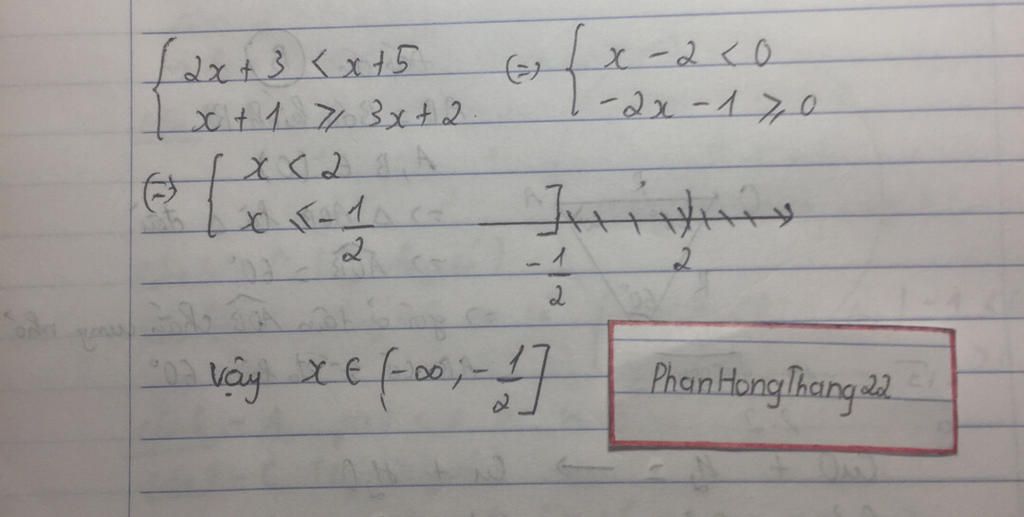 { 2x + 3 < x + 5 (=) { x - 2 < 0
x + 1 ⩾ 3x + 2 -2x - 1 ⩾ 0
(=) { x < 2
x ⩽ -1/2
-1/2 2
Vậy x ∈ (-∞; -1/2]
PhanHongThang22